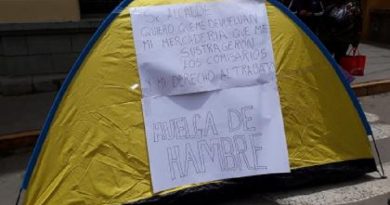 SR. ALCALDE
QUIERO QUE ME DEVUELVAN
MI MERCADERIA QUE ME
SUSTRAGERON
LOS COMISARIOS
Y MI DERECHO AL TRABAJO
HUELGA DE
HAMBRE